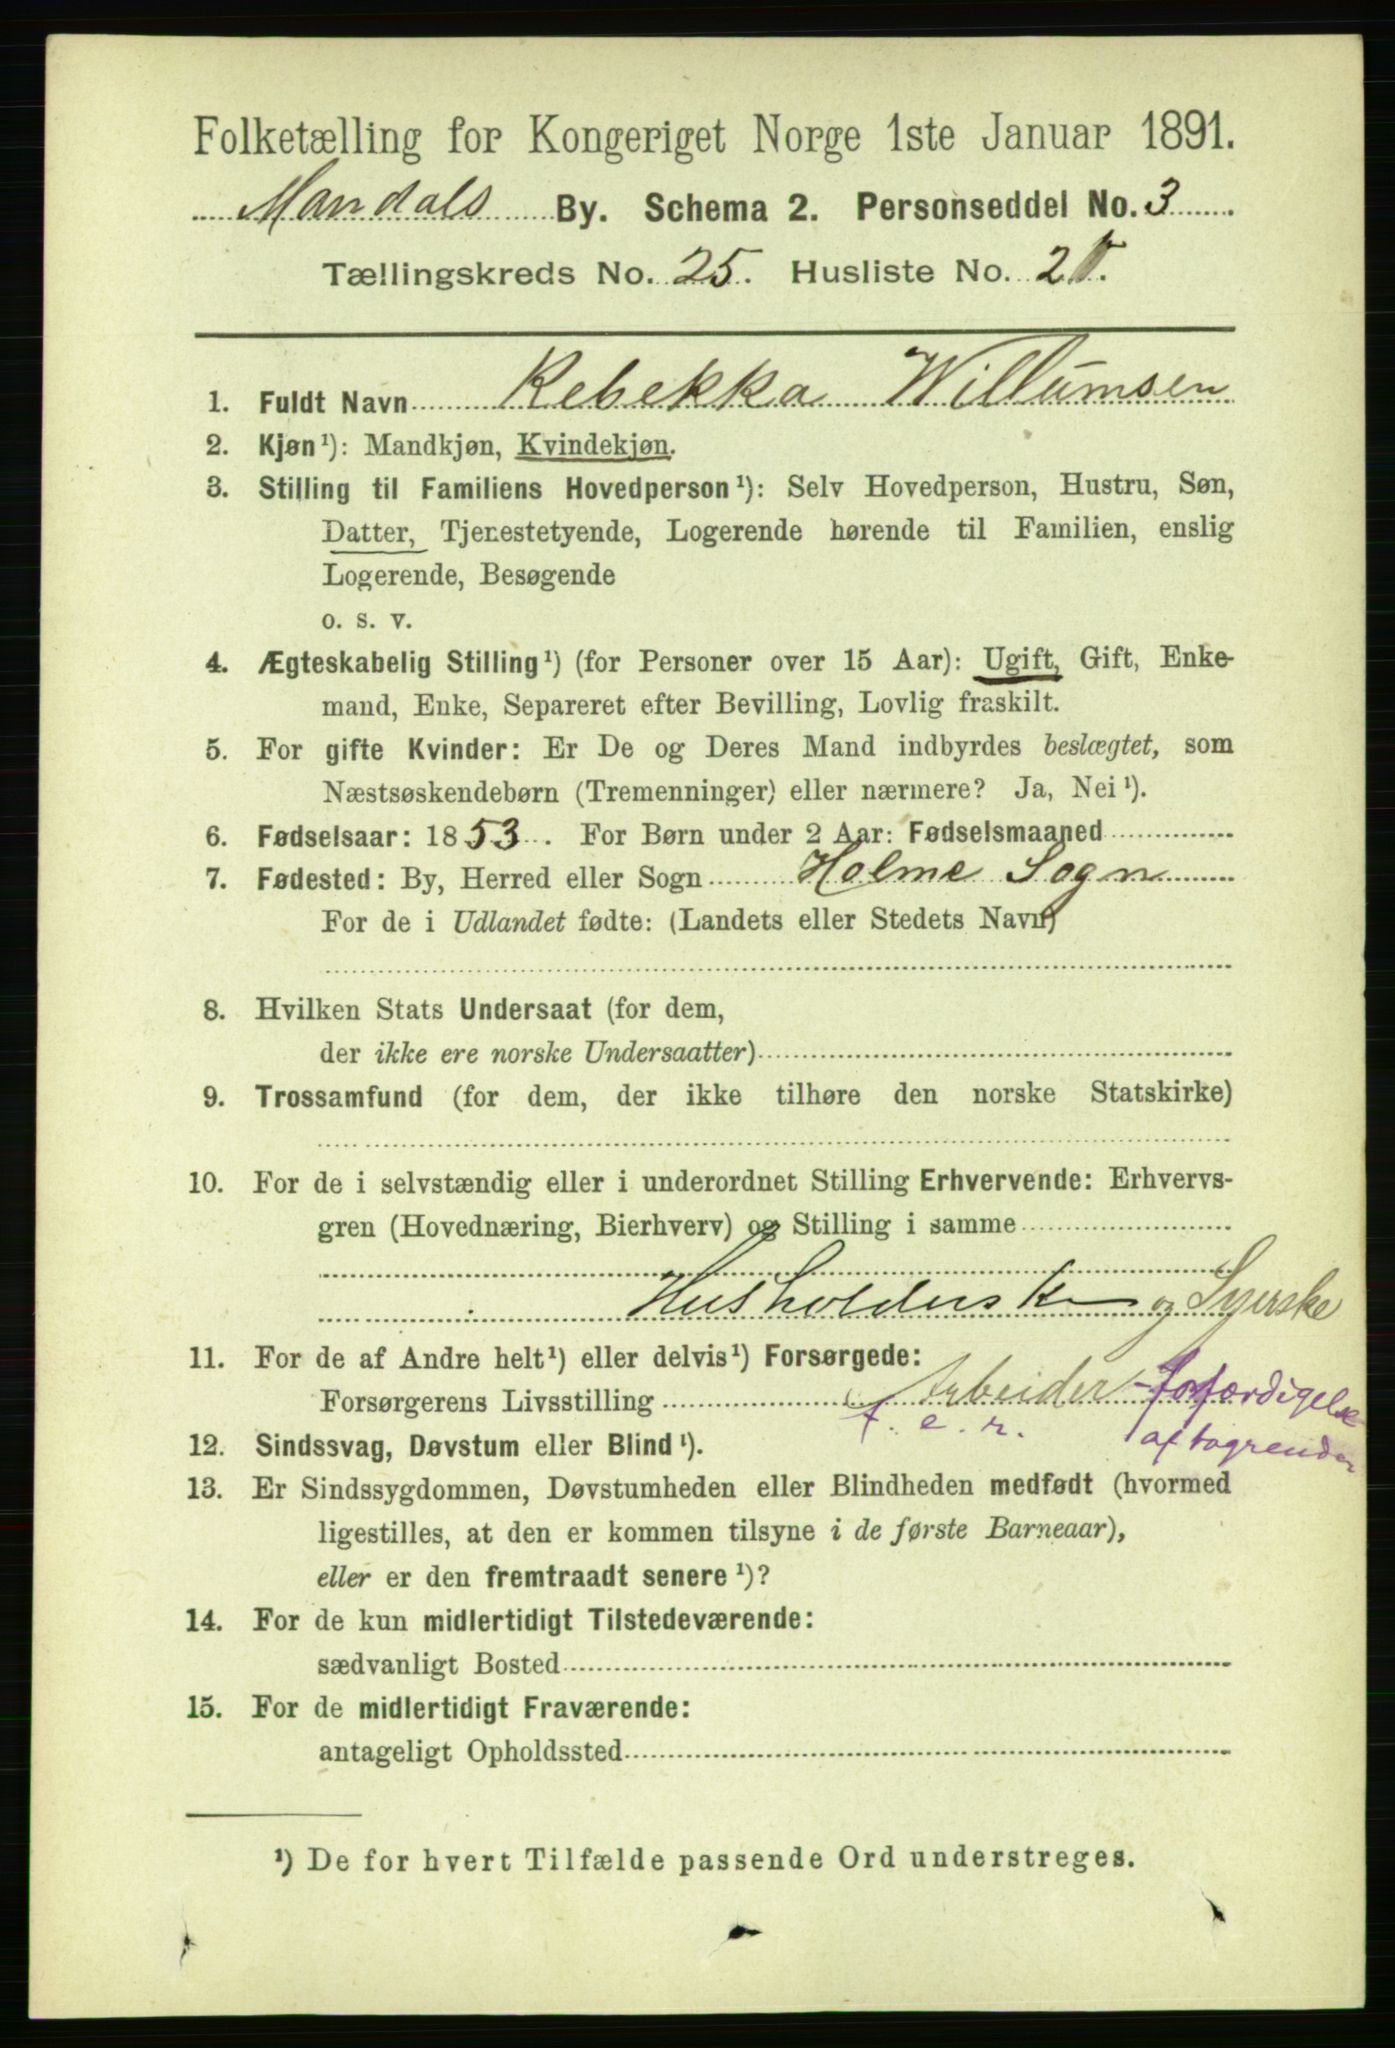 Folketælling for Kongeriget Norge 1ste Januar 1891.
Mandals By. Schema 2. Personseddel No. 3
Tællingskreds No. 25. Husliste No. 20.
1. Fuldt Navn Rebekka Willumsen
2. Kjøn¹): Mandkjøn, Kvindekjøn.
3. Stilling til Familiens Hovedperson¹): Selv Hovedperson, Hustru, Søn,
Datter, Tjenestetyende, Logerende hørende til Familien, enslig
Logerende, Besøgende
o. s. v.
4. Ægteskabelig Stilling¹) (for Personer over 15 Aar): Ugift, Gift, Enke-
mand, Enke, Separeret efter Bevilling, Lovlig fraskilt.
5. For gifte Kvinder: Er De og Deres Mand indbyrdes beslægtet, som
Næstsøskendebørn (Tremenninger) eller nærmere? Ja, Nei¹).
6. Fødselsaar: 1853. For Børn under 2 Aar: Fødselsmaaned
7. Fødested: By, Herred eller Sogn Holme Sogn
For de i Udlandet fødte: (Landets eller Stedets Navn)
8. Hvilken Stats Undersaat (for dem,
der ikke ere norske Undersaatter)
9. Trossamfund (for dem, der ikke tilhøre den norske Statskirke)
10. For de i selvstændig eller i underordnet Stilling Erhvervende: Erhvervs-
gren (Hovednæring, Bierhverv) og Stilling i samme
Husholdersk og Syerske
11. For de af Andre helt¹) eller delvis¹) Forsørgede:
Forsørgerens Livsstilling Arbeider - forfærdigelse
f. e. r. af tagrender
12. Sindssvag, Døvstum eller Blind¹).
13. Er Sindssygdommen, Døvstumheden eller Blindheden medfødt (hvormed
ligestilles, at den er kommen tilsyne i de første Barneaar),
eller er den fremtraadt senere¹)?
14. For de kun midlertidigt Tilstedeværende:
sædvanligt Bosted
15. For de midlertidigt Fraværende:
antageligt Opholdssted
¹) De for hvert Tilfælde passende Ord understreges.